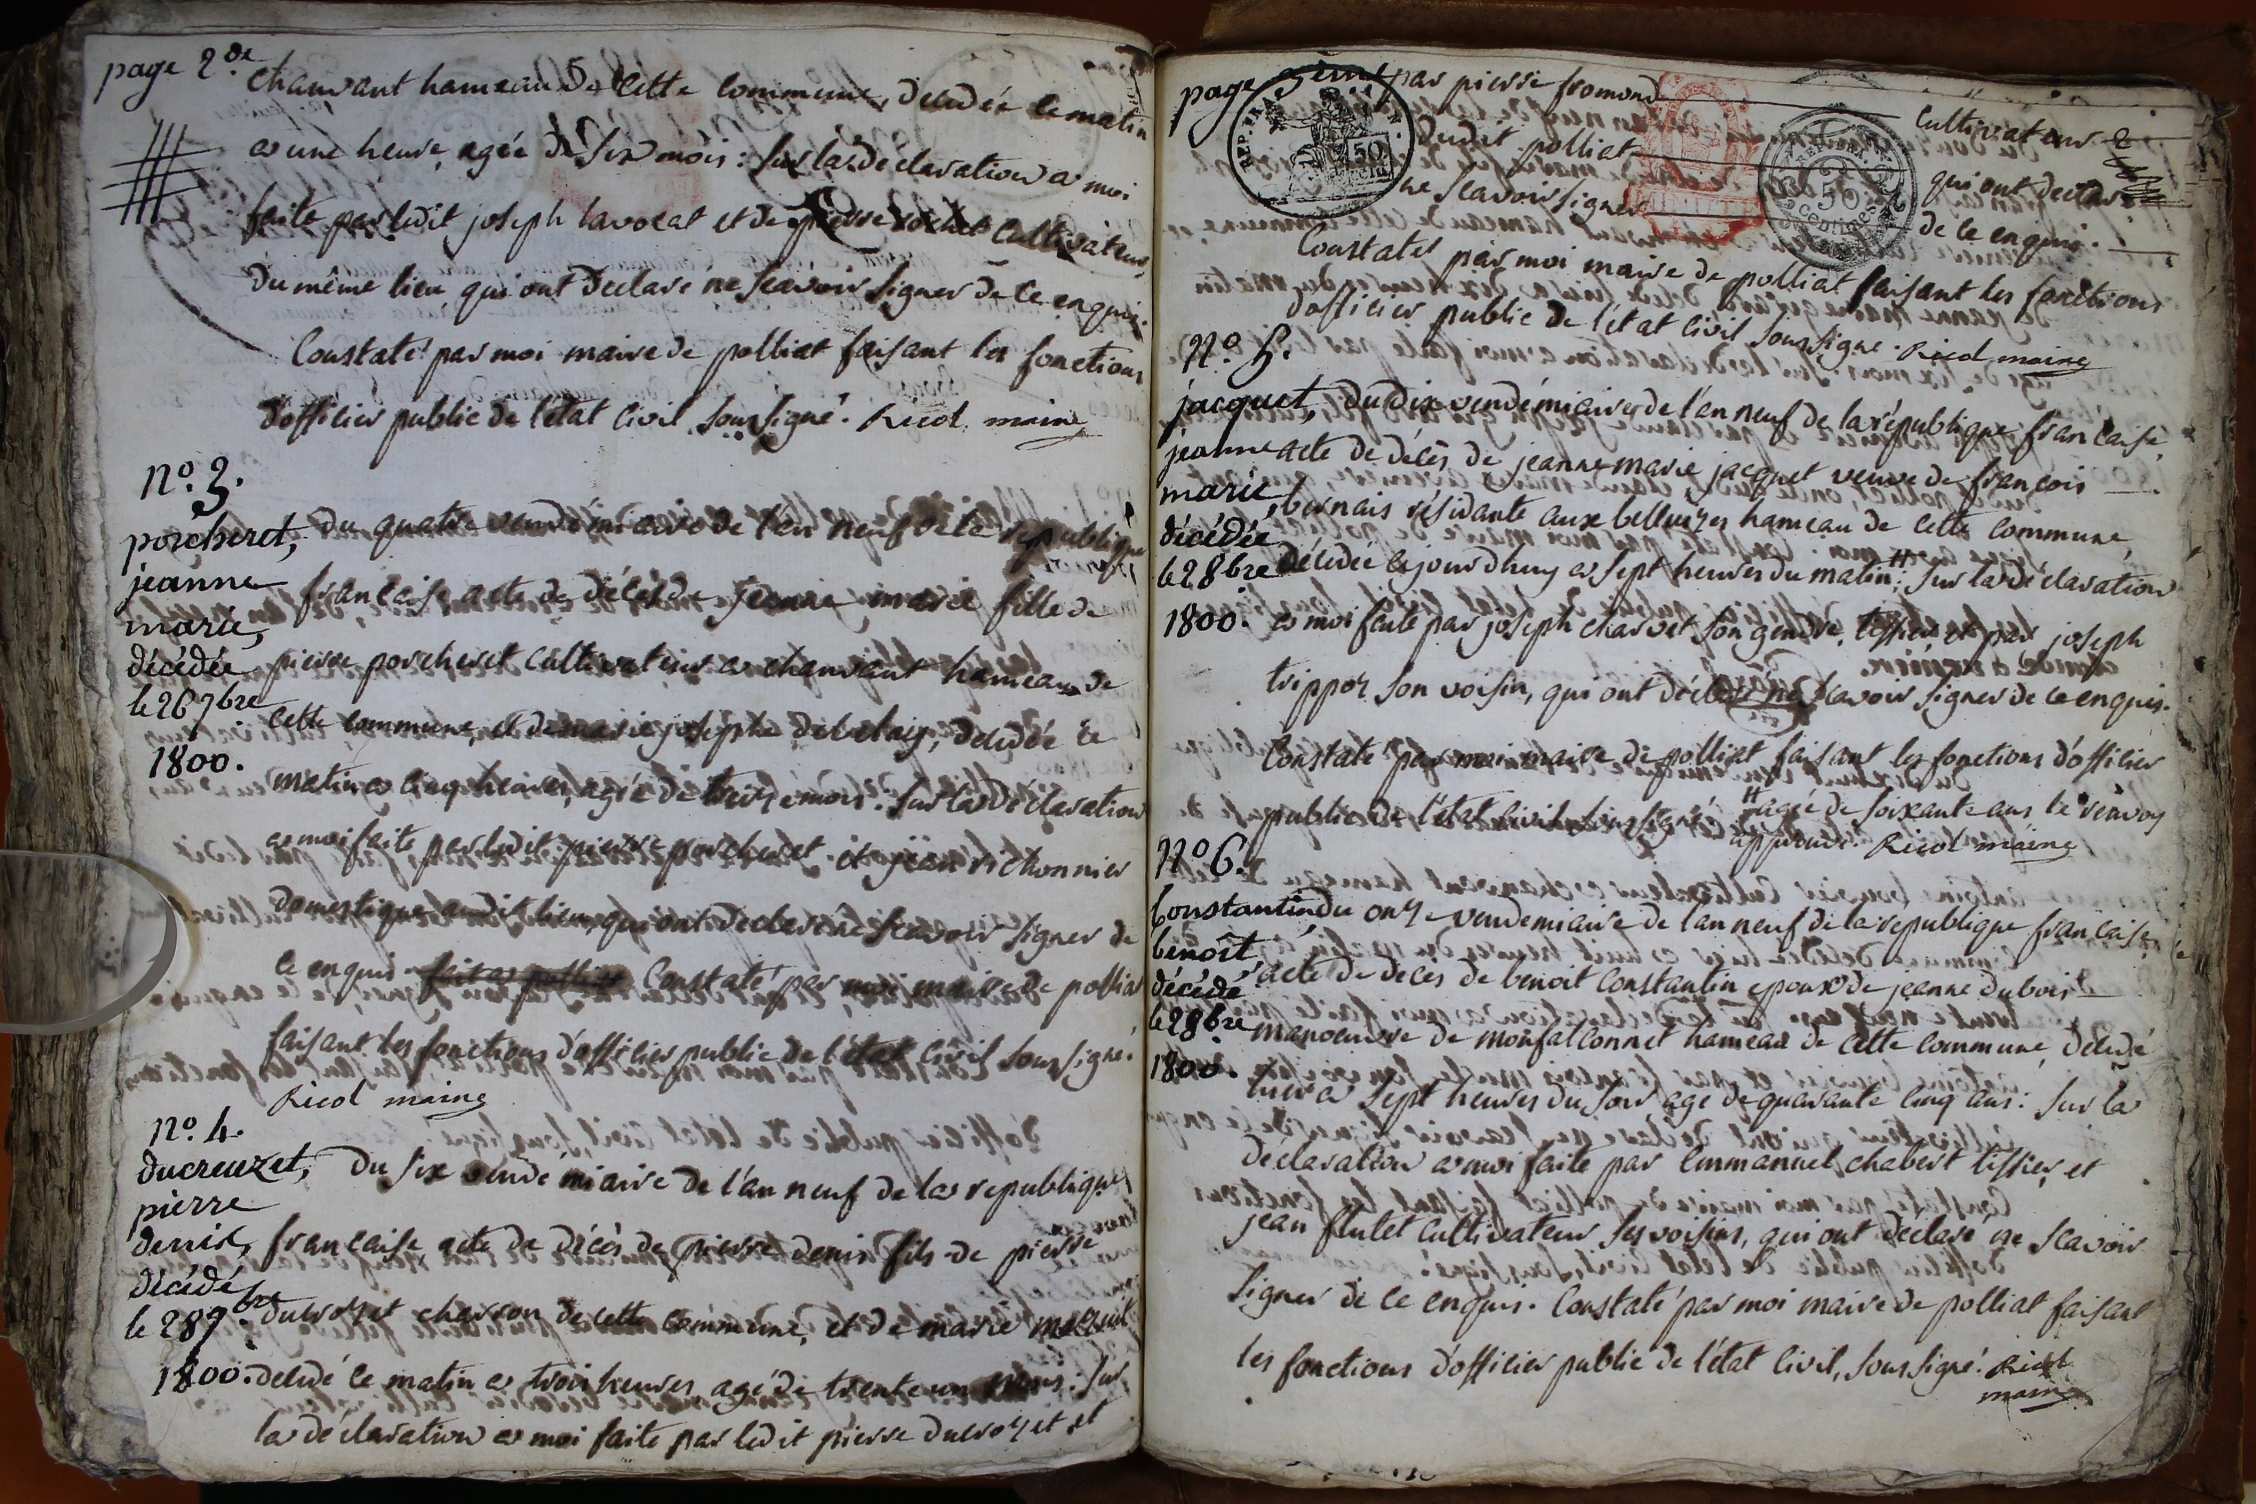 page 2.de
chanvant hameau de cette commune, décédée ce matin
a une heure, agée de six mois : sur la déclaration a moi
faite par ledit joseph lavocat et de pierre rochet cultivateurs
du même lieu, qui ont déclaré ne scavoir signer de ce enquis.
Constaté par moi maire de polliat faisant les fonctions
d'officier public de l'état civil soussigné. Ricol maire
n.o 3.
porcheret,
jeanne
marie,
décédée
le 26 7bre
1800.
du quatre vendémiaire de l'an neuf de la republique
francaise acte de décès de jeanne marie fille de
pierre porcheret cultivateur a chanvant hameau de
cette commune, et de marie josephe debelay, décédée ce
matin a cinq heures, agée de treize mois : sur la déclaration
a moi faite par ledit pierre porcheret et jean richonnier
domestique audit lieu, qui ont declaré ne scavoir signer de
ce enquis. fait a polliat Constaté par moi maire de polliat
faisant les fonctions d'officier public de l'état civil soussigné.
Ricol maire
n.o 4.
ducreuzet,
pierre
denis,
décédé
le 28 7bre.
1800.
du six vendémiaire de l'an neuf de la republique
francaise, acte de décès de pierre denis fils de pierre
ducrozet charron de cette commune, et de marie
décédé ce matin a trois heures, agé de trente un mois : sur
la déclaration a moi faite par ledit pierre ducrozet et
page 3eme
par pierre fromond cultivateur
dudit polliat qui ont declaré
ne scavoir signer de ce enquis.
REP. FRA.
50
centimes
Constaté par moi maire de polliat faisant les fonctions
d'officier public de l'état civil soussigné. Ricol maire
n.o 5.
jacquet,
jeanne
marie,
décédée
le 2 8bre
1800.
du dix vendémiaire de l'an neuf de la république francaise,
acte de décès de jeanne marie jacquet veuve de francois
bernais résidante aux hameau de cette commune,
décédée cejourdhuy a sept heures du matin : H sur la déclaration
a moi faite par joseph charvet son gendre, tissier et par joseph
trippoz son voisin, qui ont déclaré ne scavoir signer de ce enquis.
Constaté par moi maire de polliat faisant les fonctions d'officier
public de l'état civil, soussigné H agée de soixante ans le renvoy
approuvé. Ricol maire
n.o 6.
Constantin
benoît
décédé
le 2 8bre
1800.
du onze vendemiaire de l'an neuf de la republique francaise,
acte de deces de benoit Constantin epoux de jeanne dubois
manoeuvre de monfalconnet hameau de cette commune, décédé
hier a sept heures du soir, agé de quarante cinq ans : sur la
déclaration a moi faite par Emmanuel chabert tissier, et
jean flutet cultivateur ses voisins, qui ont déclaré ne scavoir
signer de ce enquis. Constaté par moi maire de polliat faisant
les fonctions d'officier public de l'état civil, soussigné. Ricol
maire